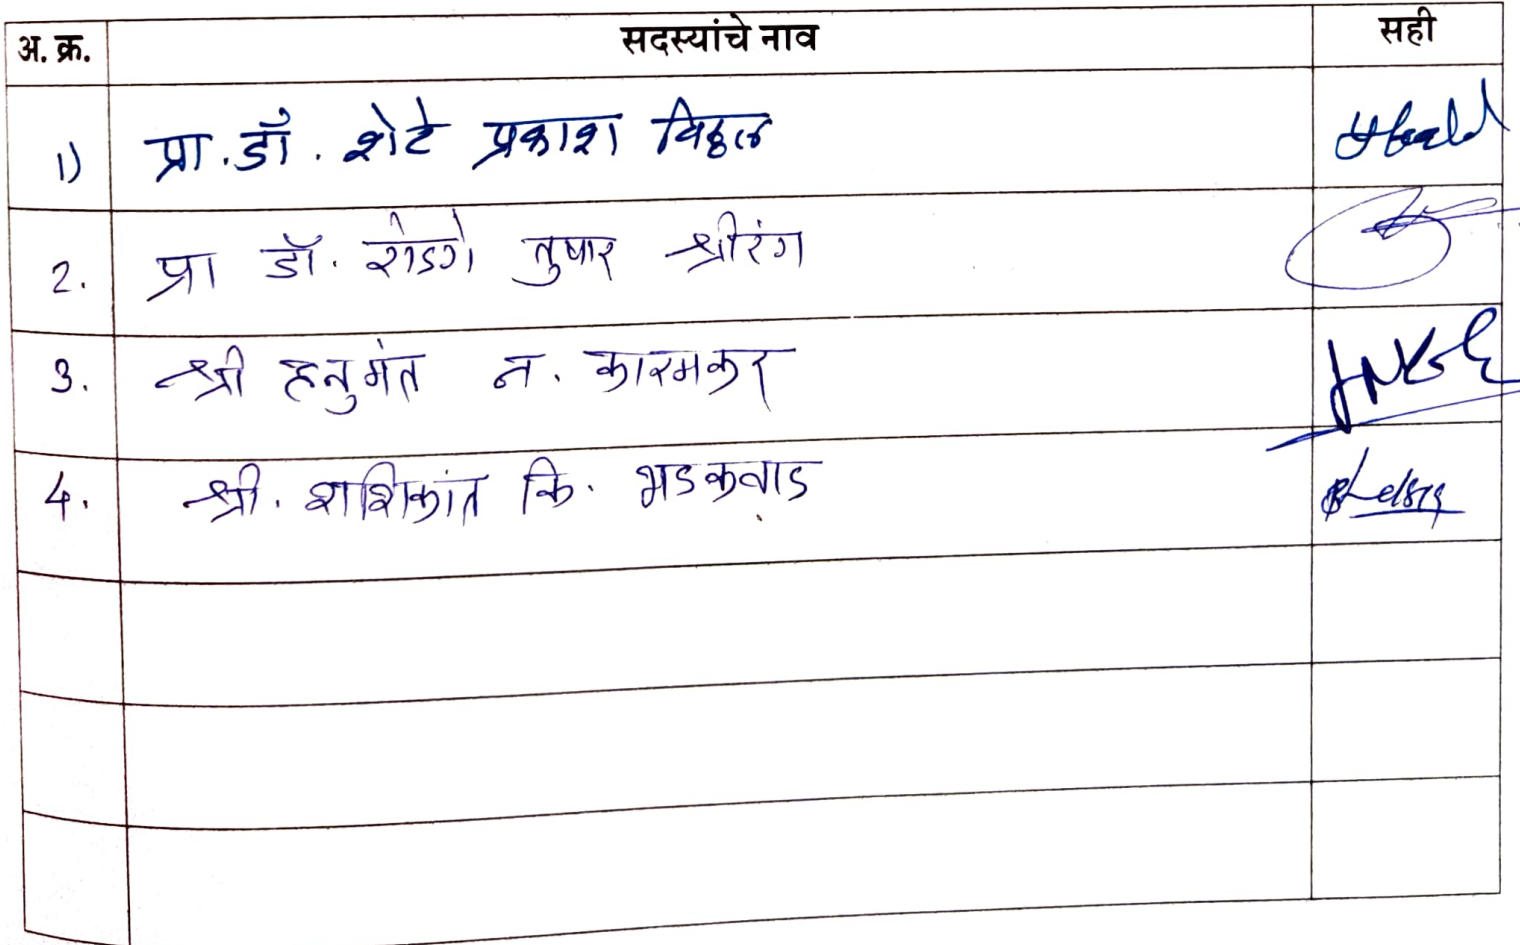 अ. क्र. सदस्यांचे नाव सही
1) प्रा. डॉ. शेटे प्रकाश विठ्ठल
2. प्रा डॉ. शेडगे तुषार श्रीरंग
3. श्री हनुमंत न. कारमकर
4. श्री. शशिकांत कि. भडकवाड